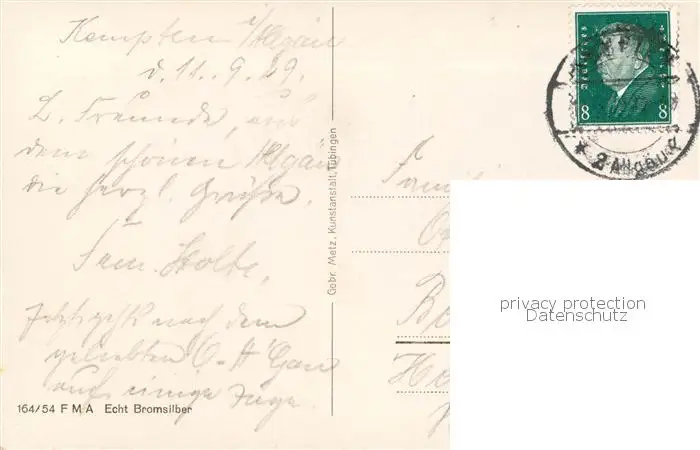 Kempten i/Allgäu
d. 11. 9. 29.
L. Freunde, aus
dem schönen Allgäu
die herzl. Grüße.
Fam. Holte,
Jetzt geht's nach dem
geliebten O-A'Gau
auf einige Tage.
164/54 F M A Echt Bromsilber
Gebr. Metz, Kunstanstalt, Tübingen
8 8
* (Allgäu) *
Familie
privacy protection
Datenschutz